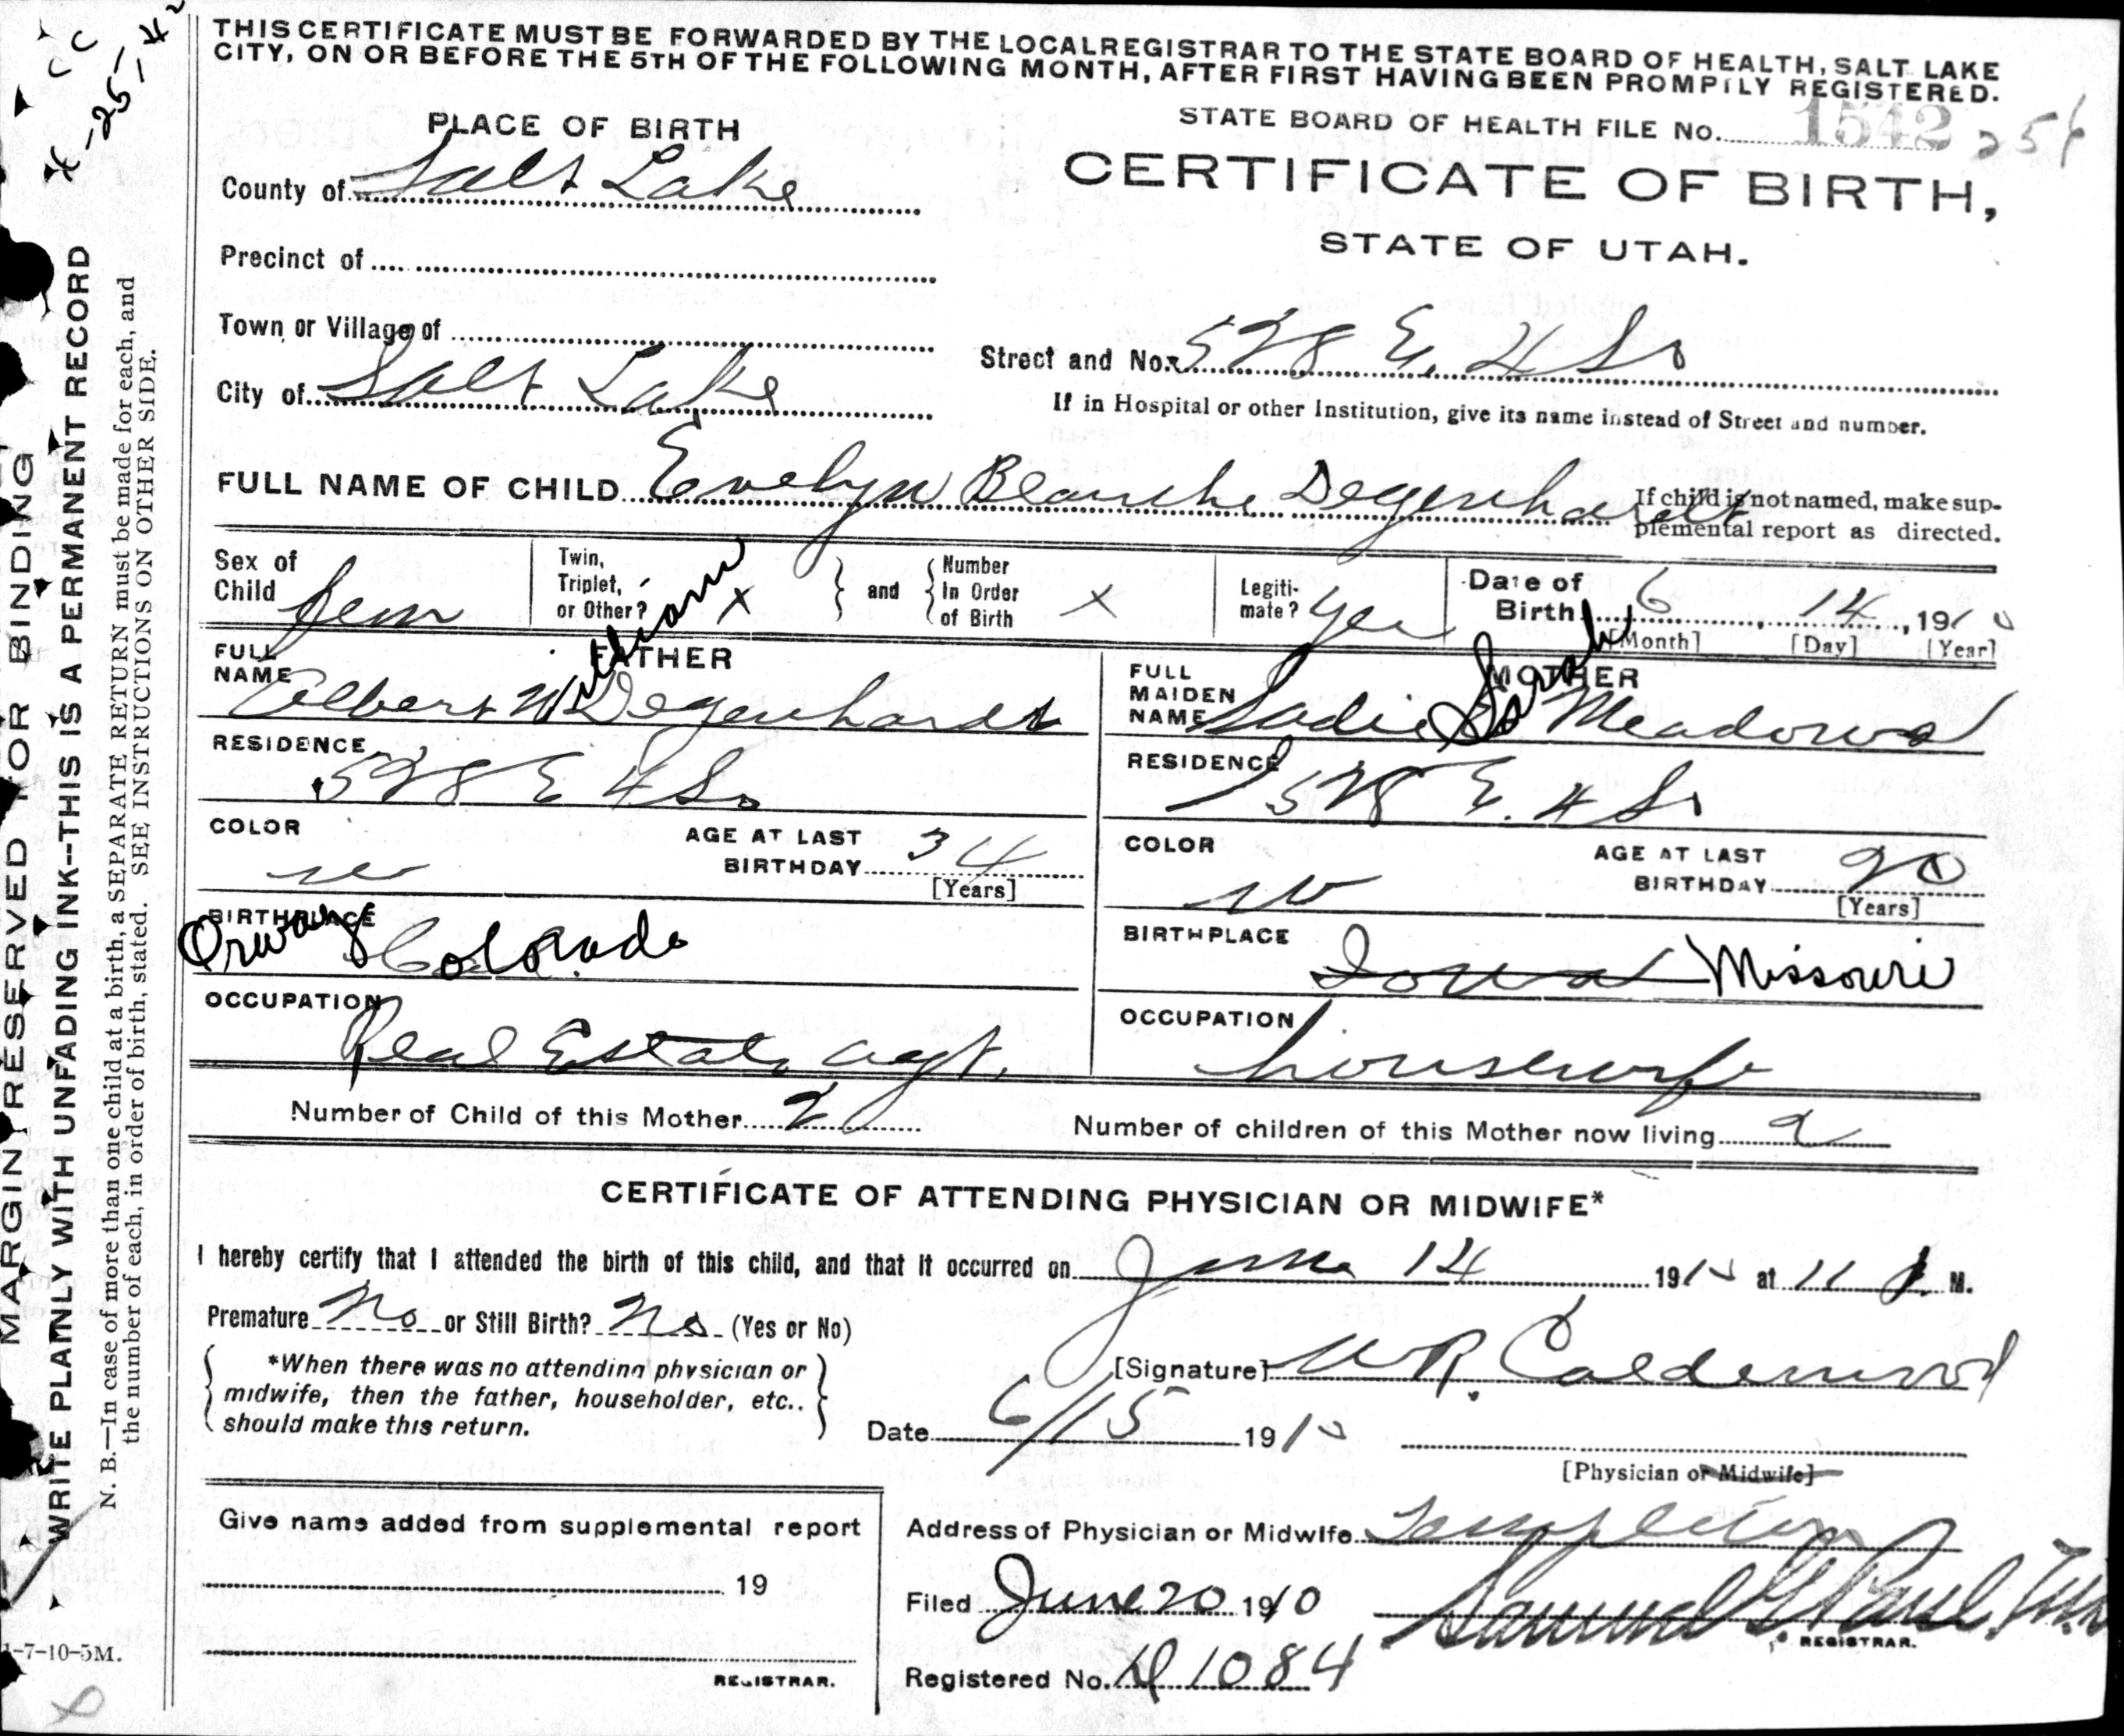 THIS CERTIFICATE MUST BE FORWARDED BY THE LOCAL REGISTRAR TO THE STATE BOARD OF HEALTH, SALT LAKE
CITY, ON OR BEFORE THE 5TH OF THE FOLLOWING MONTH, AFTER FIRST HAVING BEEN PROMPTLY REGISTERED.
PLACE OF BIRTH
STATE BOARD OF HEALTH FILE No. 1542 254
County of Salt Lake
CERTIFICATE OF BIRTH,
STATE OF UTAH.
Precinct of
Town or Village of
Street and No. 528 E. 4 So
City of Salt Lake
If in Hospital or other Institution, give its name instead of Street and number.
FULL NAME OF CHILD Evelyn Blanche Degenhardt
If child is not named, make sup-
plemental report as directed.
Sex of Child fem
Twin, Triplet, or Other? x
and
Number In Order of Birth x
Legiti-mate? yes
Date of Birth 6 14, 1910
[Month] [Day] [Year]
FATHER
FULL NAME Albert W William Degenhardt
RESIDENCE 528 E 4 So
COLOR w
AGE AT LAST BIRTHDAY 34
[Years]
BIRTHPLACE Orway Colorado
OCCUPATION Real Estate agt.
MOTHER
FULL MAIDEN NAME Sadie Sarah Meadows
RESIDENCE 528 E. 4 So
COLOR w
AGE AT LAST BIRTHDAY 20
[Years]
BIRTHPLACE Iowa Missouri
OCCUPATION housewife
Number of Child of this Mother 2
Number of children of this Mother now living 2
CERTIFICATE OF ATTENDING PHYSICIAN OR MIDWIFE*
I hereby certify that I attended the birth of this child, and that it occurred on June 14 1910 at 11 P. M.
Premature No or Still Birth? No (Yes or No)
*When there was no attending physician or
midwife, then the father, householder, etc..
should make this return.
[Signature] W R. Calderwood
Date 6/15 1910
[Physician or Midwife]
Give name added from supplemental report
19
REGISTRAR.
Address of Physician or Midwife Templeton
Filed June 20 1910
Samuel G Paul
REGISTRAR.
Registered No. 1084
MARGIN RESERVED FOR BINDING
WRITE PLAINLY WITH UNFADING INK--THIS IS A PERMANENT RECORD
N. B.—In case of more than one child at a birth, a SEPARATE RETURN must be made for each, and
the number of each, in order of birth, stated. SEE INSTRUCTIONS ON OTHER SIDE.
1-7-10-5M.